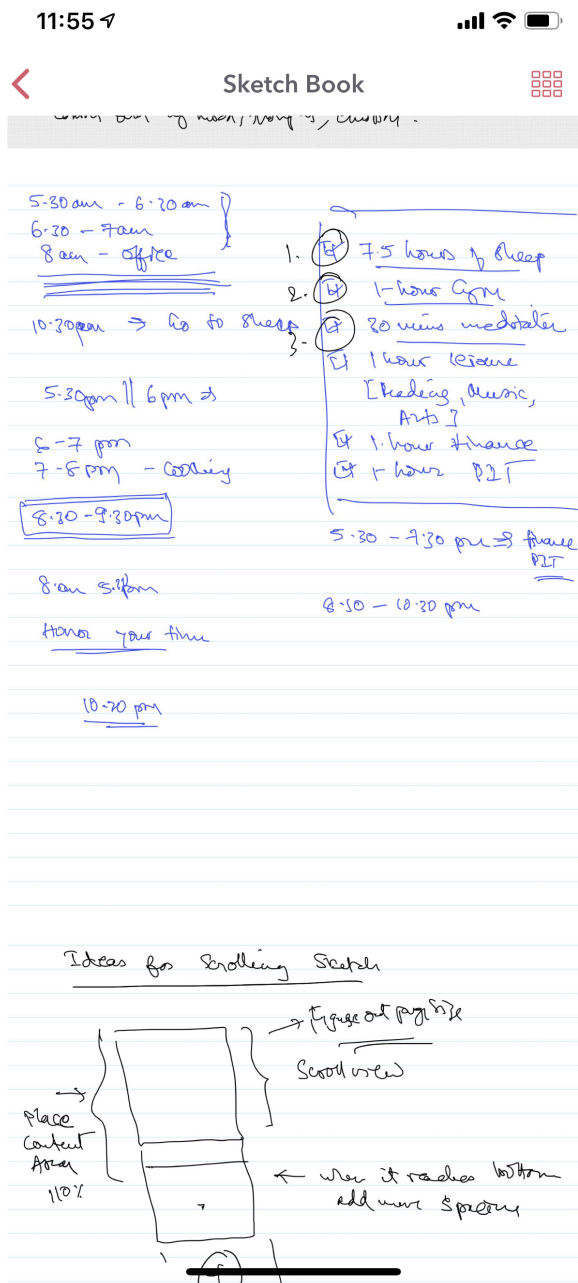 11:55
Sketch Book
5-30am - 6-30am
6-30 - 7am
8am - office
10-30pm ⇒ Go to sleep
5-30pm || 6pm ⇒
6-7 pm
7-8pm - Cooking
8-30 - 9-30pm
8am 5:30pm
Honor your time
10-30 pm
1. 7.5 hours of sleep
2. 1-hour Gym
3- 30 mins
1 hour leisure
[Reading, Music,
Arts]
1-hour finance
1-hour PIT
5-30 - 7:30 pm ⇒ finance
PIT
8-30 - 10-30 pm
Ideas for Scrolling Sketch
→ Figure out page size
Scroll view
→
Place
Content
Area
110%
← when it reaches bottom
add more spacing